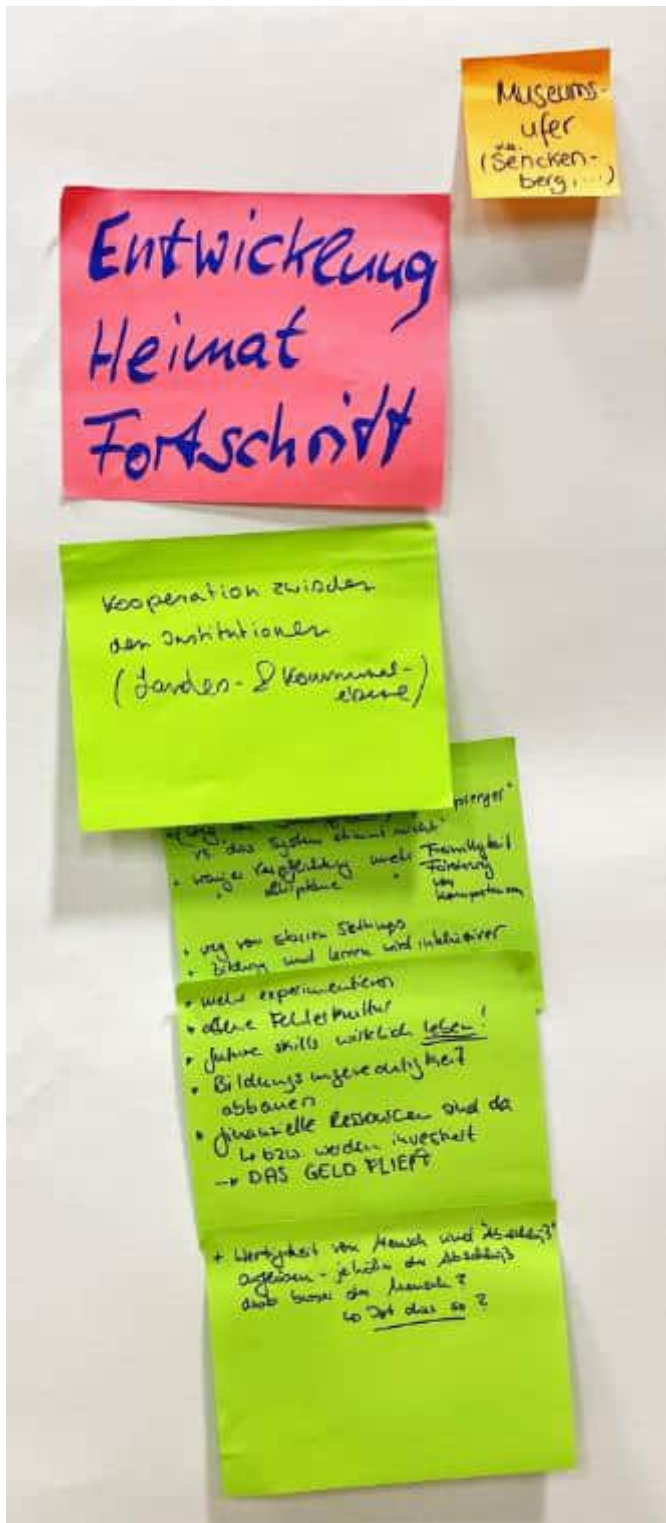 Museums-
ufer
(Sencken-
berg, ...)
Entwicklung
Heimat
Fortschritt
Kooperation zwischen
den Institutionen
(Landes- & Kommunal-
ebene)
vs. das System stimmt nicht"
• weniger Verpflichtung mehr Freiwilligkeit
" Förderung
von
Kompetenzen
+ weg von starren Settings
+ Bildung und Lernen wird inklusiver
• mehr experimentieren
• offene Fehlerkultur
• future skills wirklich leben!
• Bildungsungerechtigkeit
abbauen
• finanzielle Ressourcen sind da
↳ bzw werden investiert
→ DAS GELD FLIEẞT
+ Wertigkeit von Mensch und "Abschluß"
angleichen - je höher der Abschluß
desto besser der Mensch?
↳ Ist das so?